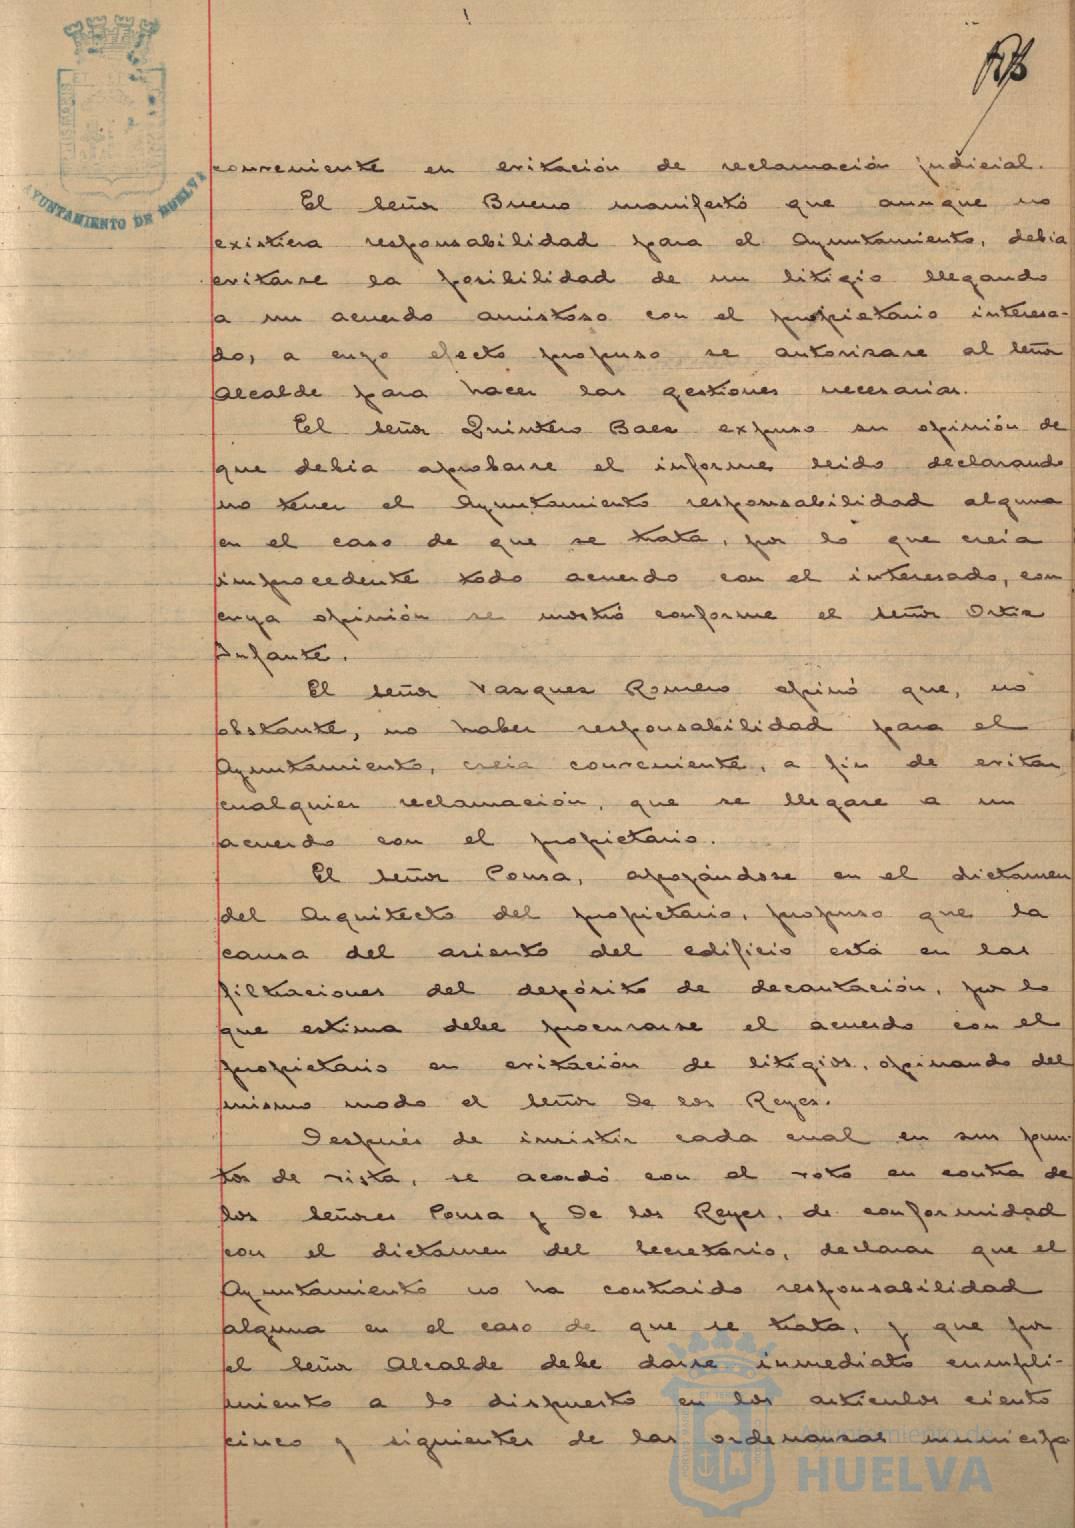 conveniente en evitación de reclamación judicial.
El Señor Bueno manifestó que aunque no
existiera responsabilidad para el Ayuntamiento, debia
evitarse la posibilidad de un litigio llegando
a un acuerdo amistoso con el propietario interesa-
do, a cuyo efecto propuso se autorizase al Señor
Alcalde para hacer las gestiones necesarias.
El Señor Quintero Baez expuso su opinión de
que debia aprobarse el informe leido declarando
no tener el Ayuntamiento responsabilidad alguna
en el caso de que se trata, por lo que creia
improcedente todo acuerdo con el interesado, con
cuya opinión se mostró conforme el Señor Ortiz
Infante.
El Señor Vazquez Romero opinó que, no
obstante, no haber responsabilidad para el
Ayuntamiento, creia conveniente, a fin de evitar
cualquier reclamación, que se llegase a un
acuerdo con el propietario.
El Señor Pousa, apoyándose en el dictamen
del Arquitecto del propietario, propuso que la
causa del asiento del edificio está en las
filtraciones del depósito de decantación, por lo
que estima debe procurarse el acuerdo con el
propietario en evitación de litigios, opinando del
mismo modo el Señor De los Reyes.
Después de insistir cada cual en sus pun-
tos de vista, se acordó con el voto en contra de
los Señores Pousa y De los Reyes, de conformidad
con el dictamen del Secretario, declarar que el
Ayuntamiento no ha contraido responsabilidad
alguna en el caso de que se trata, y que por
el Señor Alcalde debe darse inmediato cumpli-
miento a lo dispuesto en los articulos ciento
cinco y siguientes de las ordenanzas municipa
AYUNTAMIENTO DE HUELVA
Ayuntamiento de
HUELVA